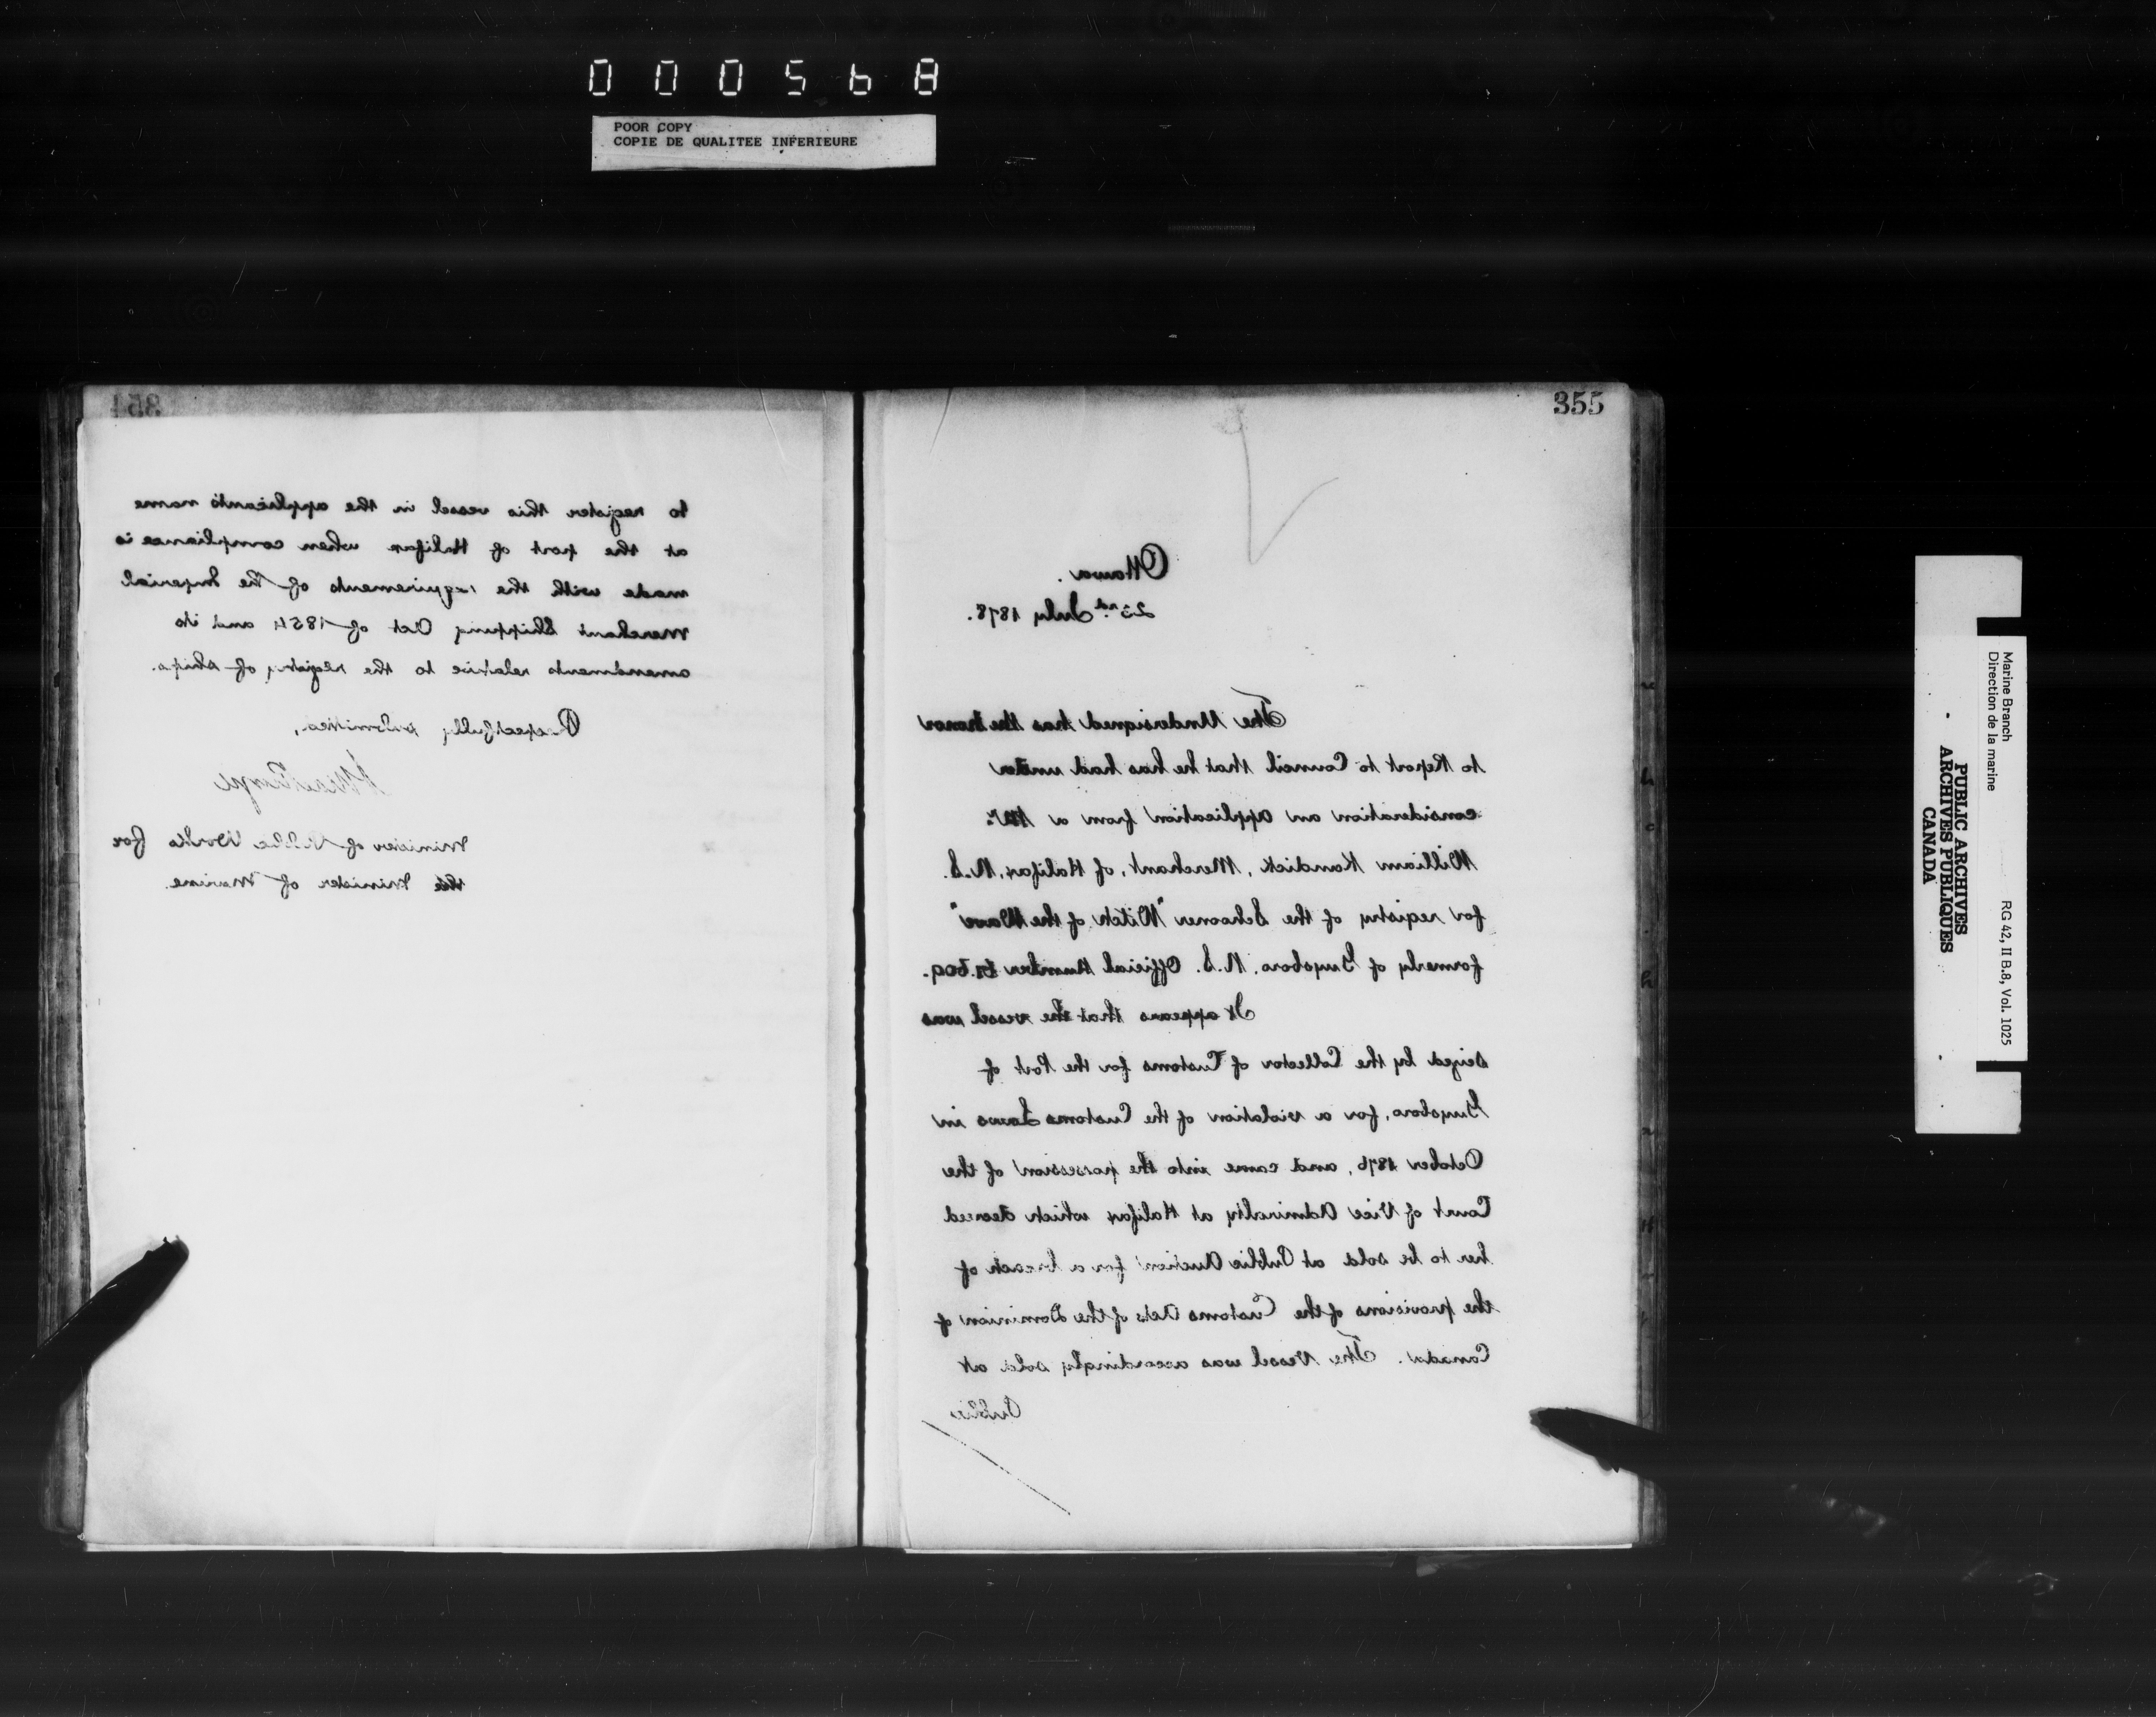 000568
POOR COPY
COPIE DE QUALITEE INFERIEURE
354
to register this vessel in the applicants name
at the port of Halifax when compliance is
made with the requirements of the Imperial
Merchant Shipping Act of 1854 and its
amendments relative to the registry of ships.
Respectfully submitted,
Minister of Public Works for
the Minister of Marine.
355
Ottawa.
23rd July 1878.
The Undersigned has the honor
to Report to Council that he has had under
consideration an application from a Mr.
William Kandick, Merchant, of Halifax, N.S.
for registry of the Schooner "Witch of the Wave"
formerly of Guysboro, N.S. Official Number
It appears that the vessel was
seized by the Collector of Customs for the Port of
Guysboro, for a violation of the Customs Laws in
October 1876, and came into the possession of the
Court of Vice Admiralty at Halifax which decreed
her to be sold at Public Auction for a breach of
the provisions of the Customs Acts of the Dominion of
Canada. The Vessel was accordingly sold at
Public
Marine Branch
Direction de la marine
RG 42, II B.8, Vol. 1025
PUBLIC ARCHIVES
ARCHIVES PUBLIQUES
CANADA